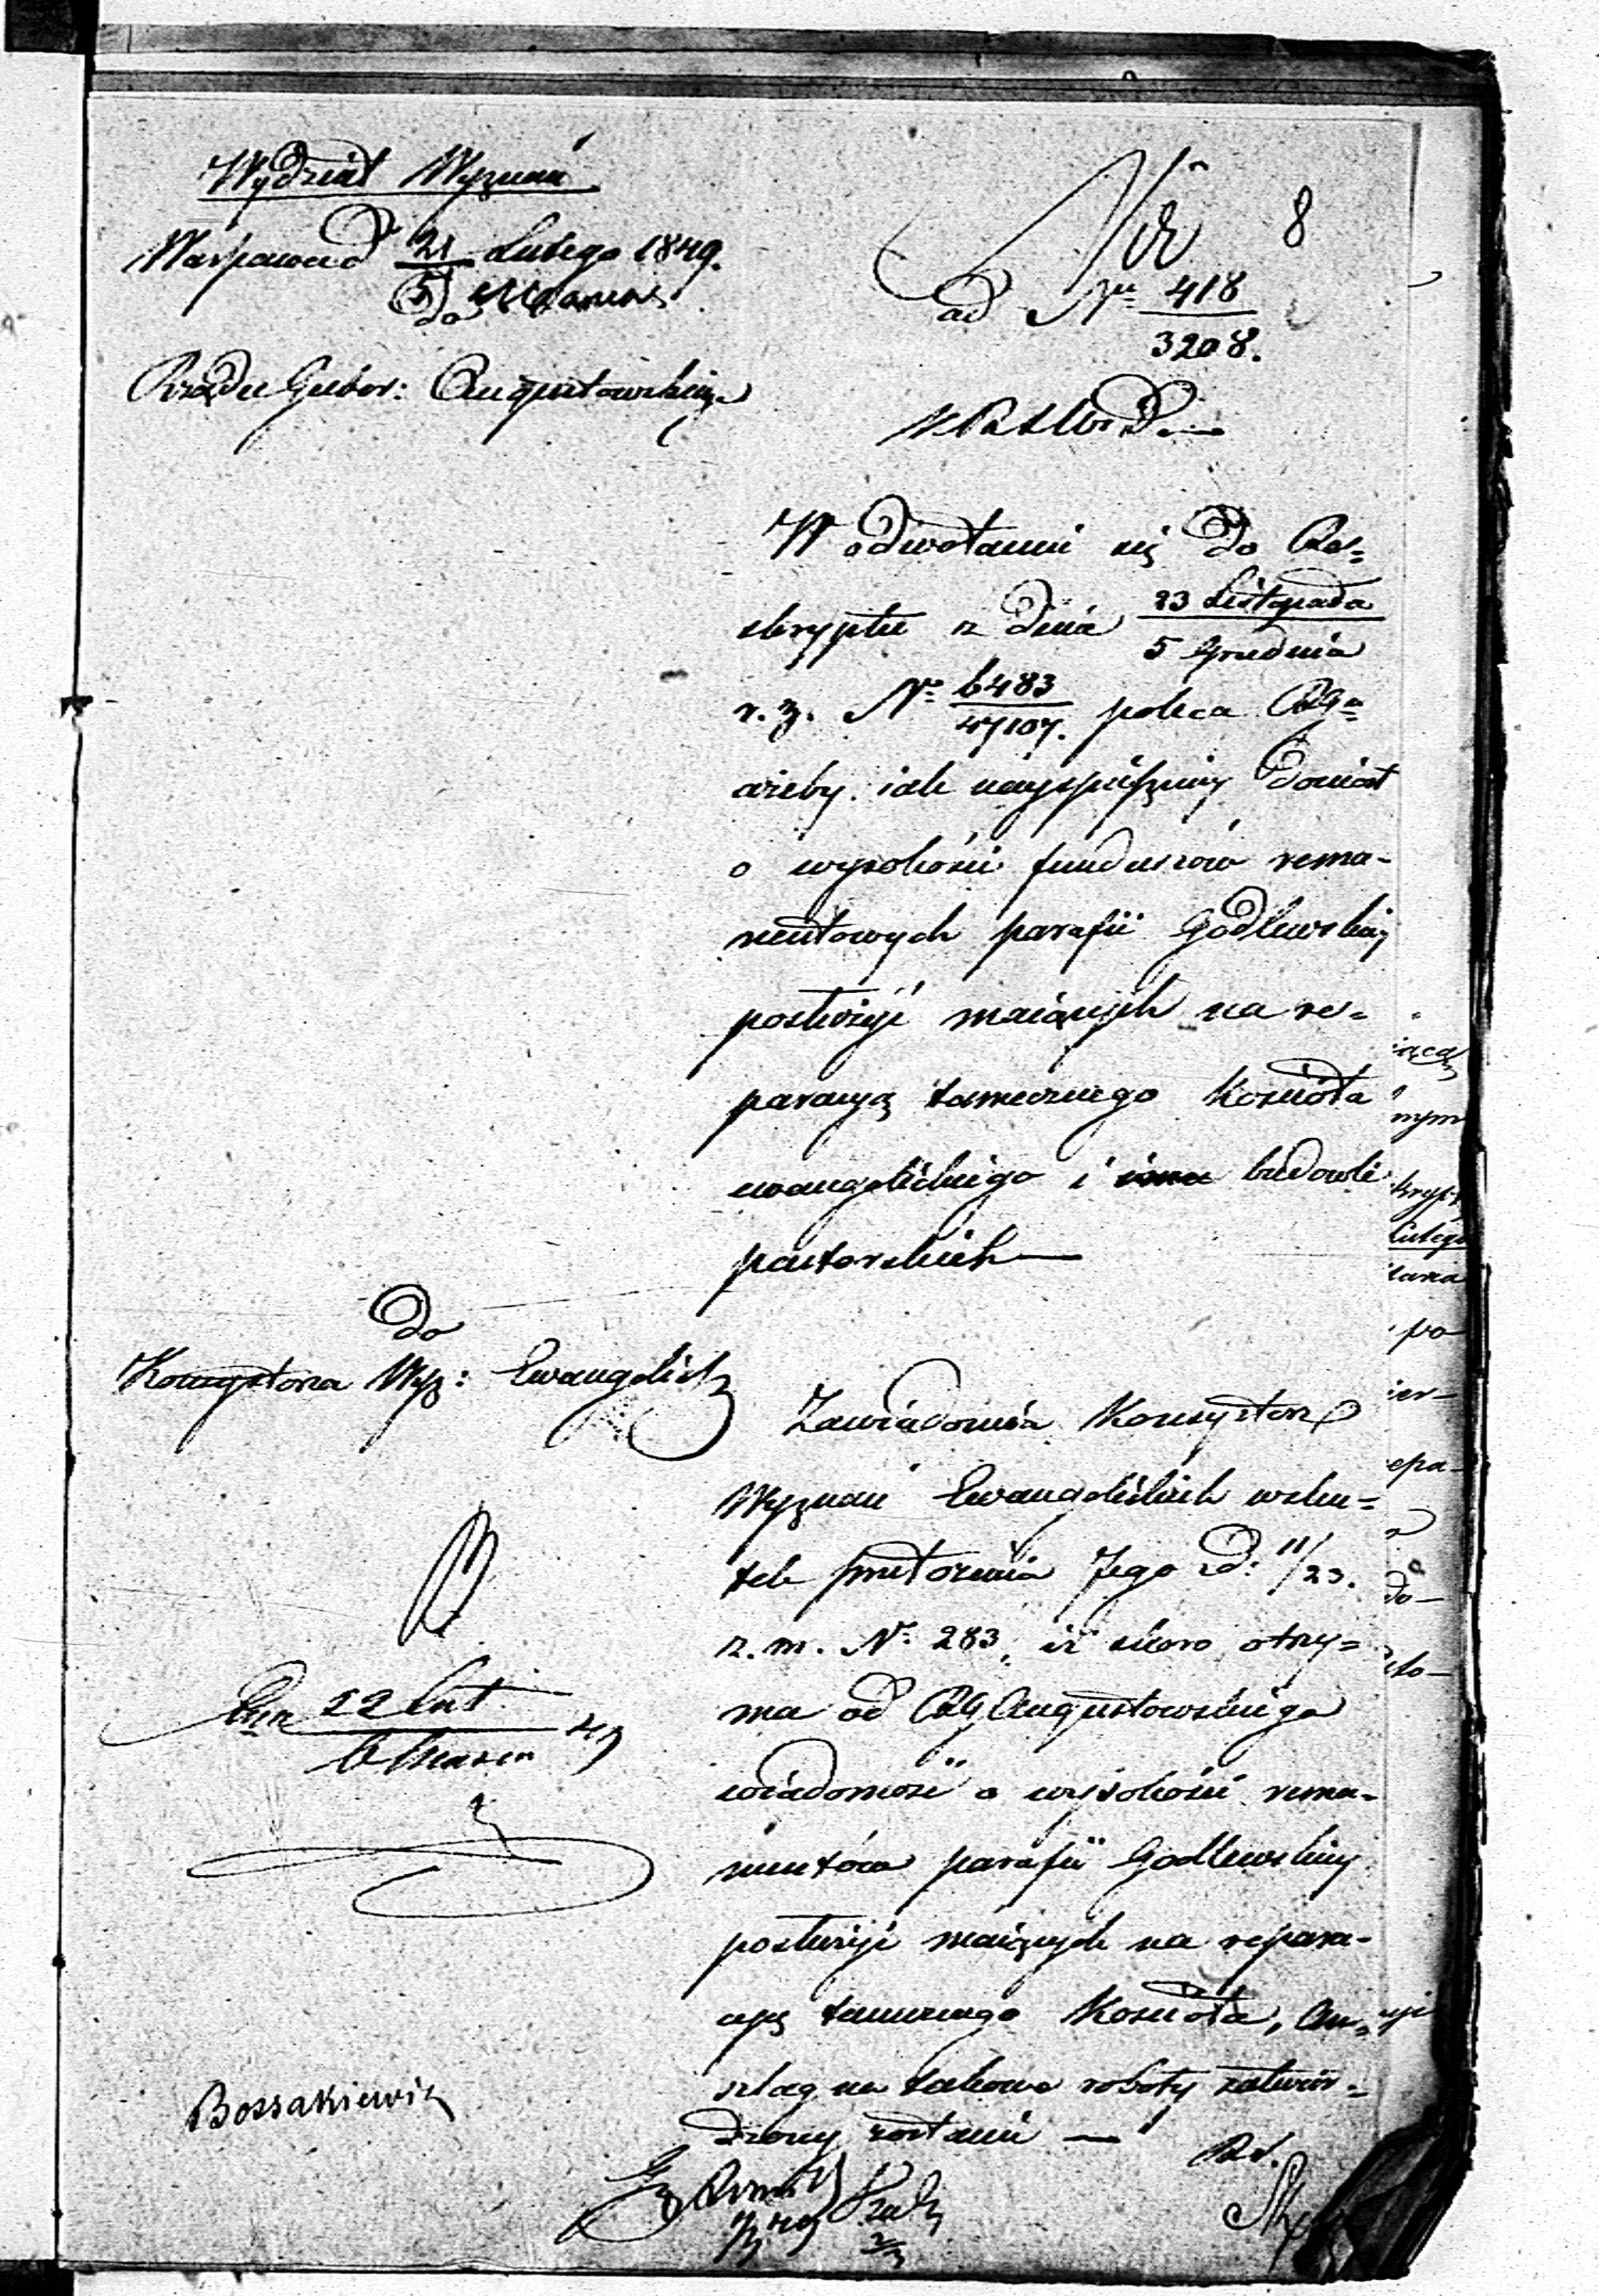 Wydział Wyznań
8
Warszawa d 21 Lutego 1849.
5 Marca
ad Nr 418
3208.
do
Rządu Guber: Augustowskiego
W odwołaniu się do Re=
skryptu z dnia 23 Listopada
5 Grudnia
r. z. No 6483
47107. poleca RGo
ażeby iak nayspieszniey doniósł
o wysokości funduszów rema-
nentowych parafii Godlewskiey
posłużyć maiących na re=
paracyą tamecznego Kościoła
ewangelickiego i budowli
pastorskich
do
Konsystorza Wyz: Ewangelick
Zawiadomia Konsystorz
Wyznań Ewangelickich wsku=
tek przełożenia Jego z d: 11/23.
z. m. No 283, iż skoro otrzy=
ma od RG Augustowskiego
wiadomość o wysokości rema-
nentów parafii Godlewskiey
posłużyć maiących na repara-
cyę tamecznego Kościoła, an=
szlag na takowe roboty zatwier=
dzony zostanie
22 Lut
6 Marca 49
Bossakiewicz